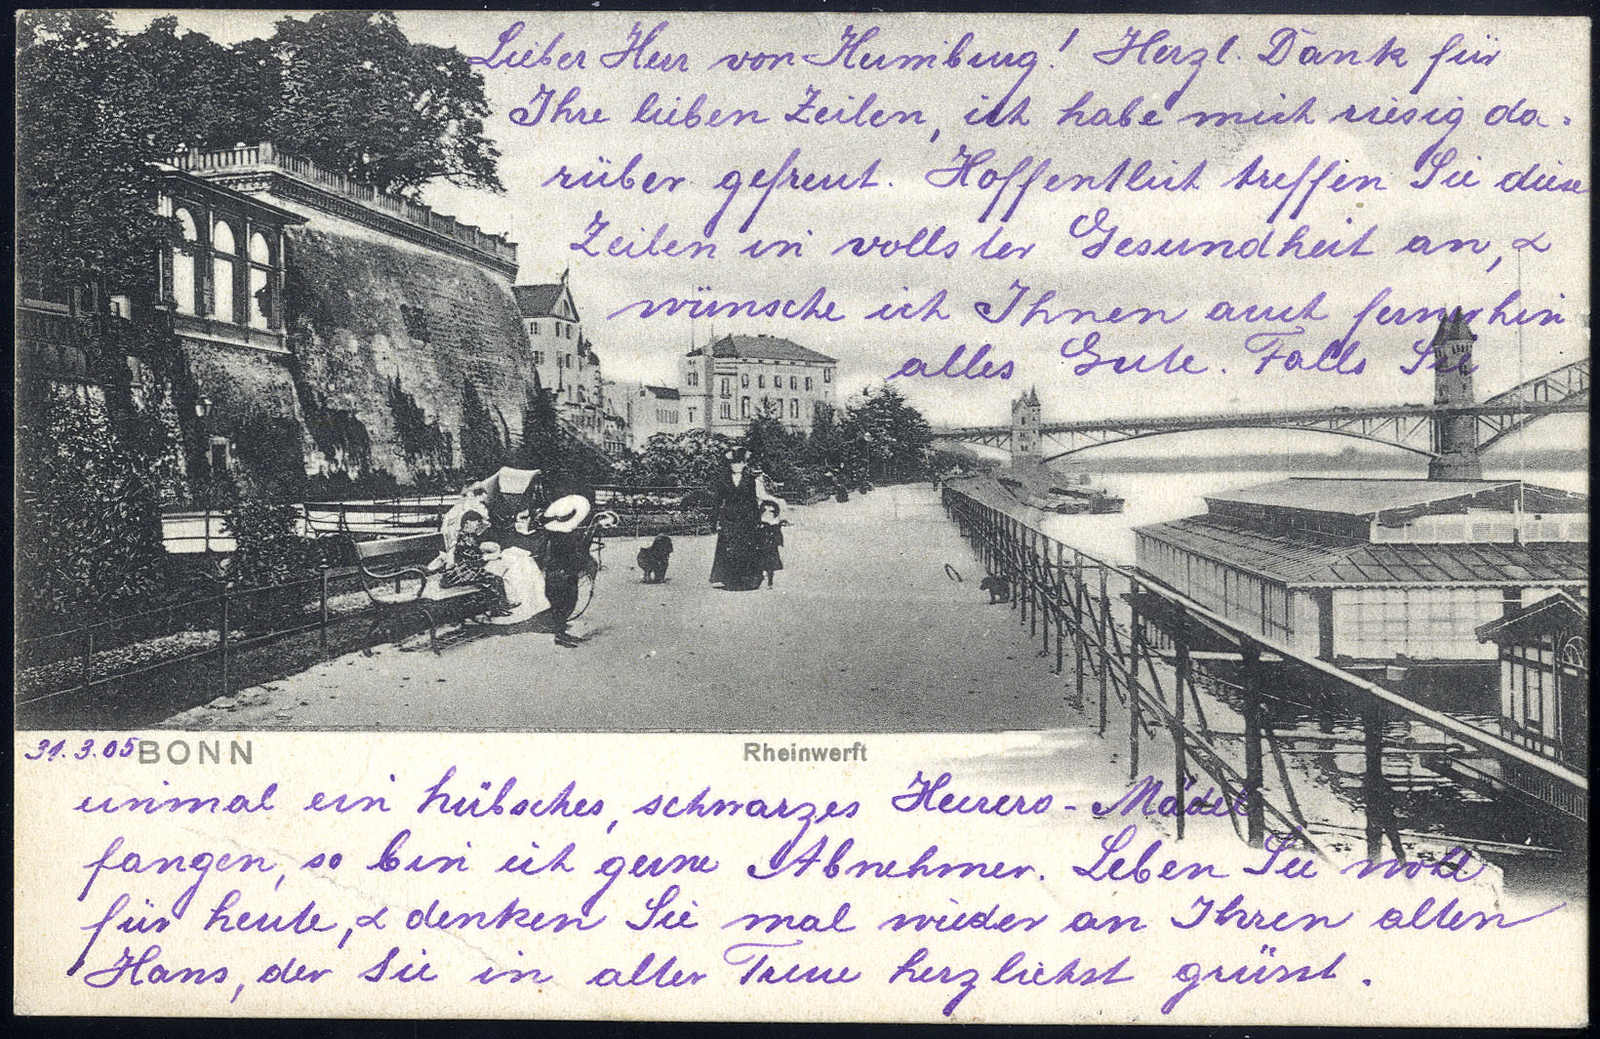 Lieber Herr von Humburg! Herzl. Dank für
Ihre lieben Zeilen, ich habe mich riesig da-
rüber gefreut. Hoffentlich treffen Sie diese
Zeilen in vollster Gesundheit an, &
wünsche ich Ihnen auch fernerhin
alles Gute. Falls Sie
31.3.05 BONN
Rheinwerft
einmal ein hübsches, schwarzes Heerero-Mädel
fangen, so bin ich gerne Abnehmer. Leben Sie wohl
für heute, & denken Sie mal wieder an Ihren alten
Hans, der Sie in alter Treue herzlichst grüsst.